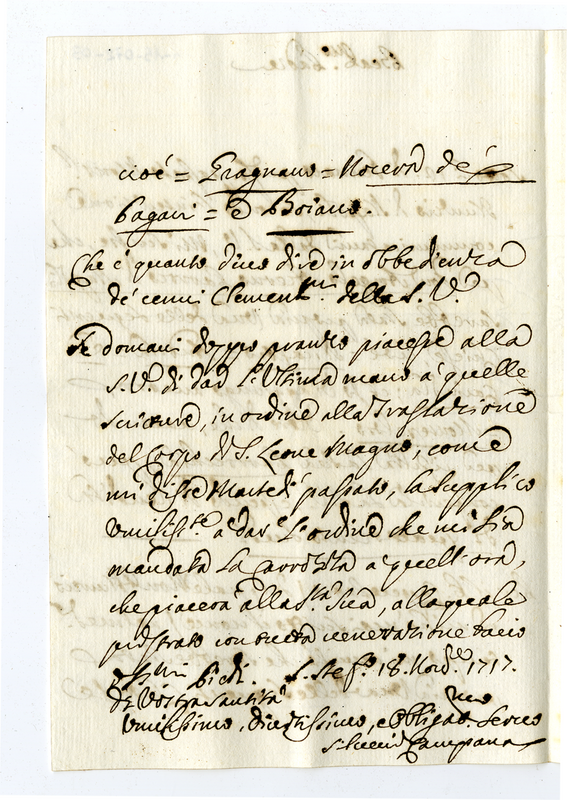 cioé = Gragnano = Nocera dé
Pagani = é Boiano.
Che é quanto devo dire in obbedienza
dé cenni Clementmi della S. V.
Se domani doppo pranzo piacesse alla
S. V. di dar l'ultima mano à quelle
scritture, in ordine alla traslazione
del Corpo di S. Leone Magno, come
mi disse Martedi passato, la supplico
umilisste à dar l'ordine che mi sia
mandata la à quell'ora,
che piacerà alla Stà Sua, alla quale
prostrato con tutta venerazione bacio
i SSmi Piedi. S. Stefo 18. Novre 1717.
Di Vostra Santità
Umilissimo, Divotissimo, e Obbligatmo Servo
Campana